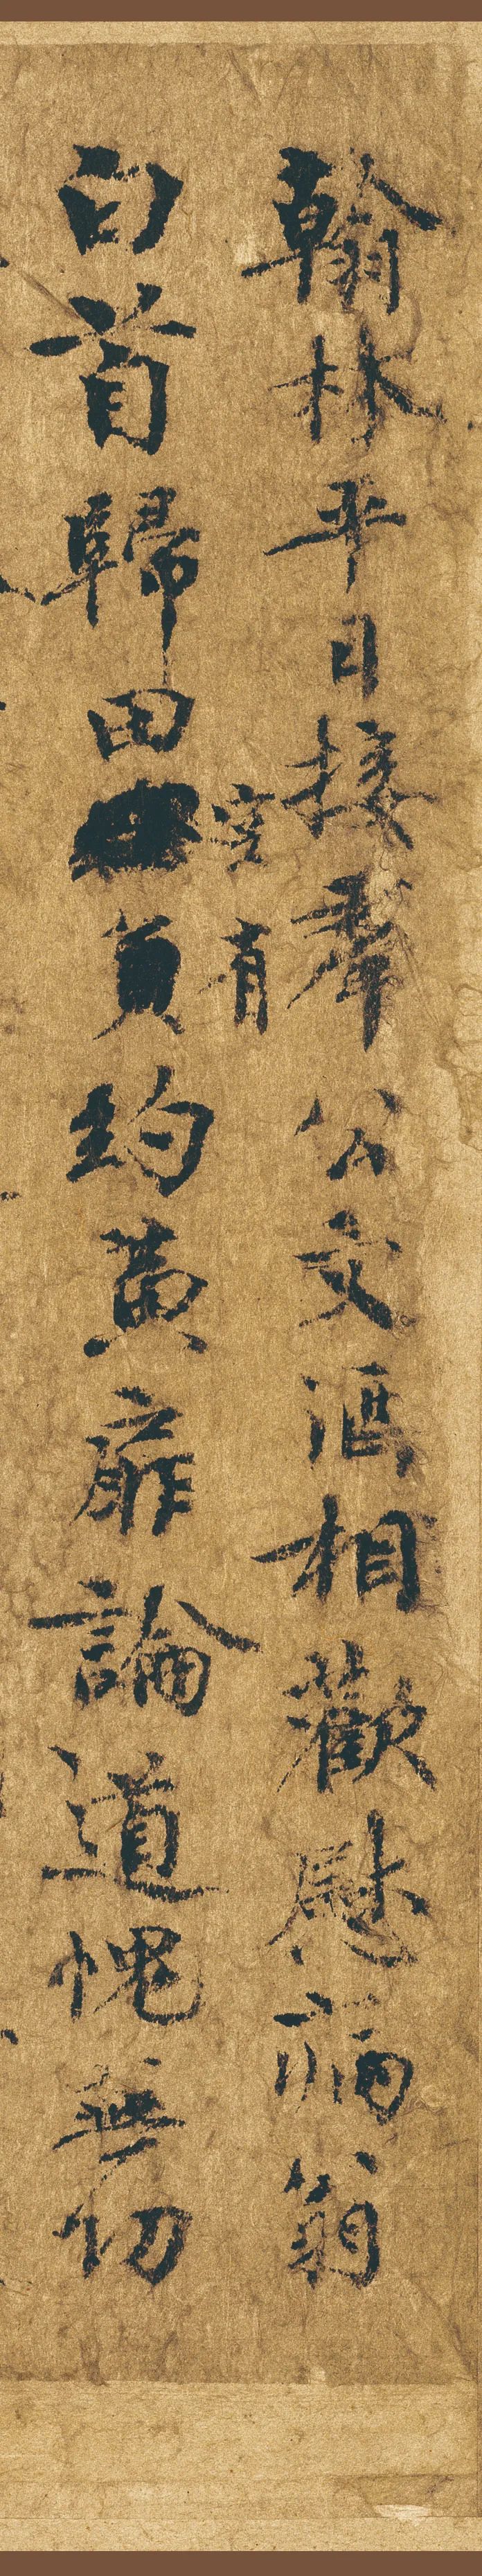 翰林平日接羣公文酒相歡慰病翁
白首歸田空有
負約黃扉論道愧無功